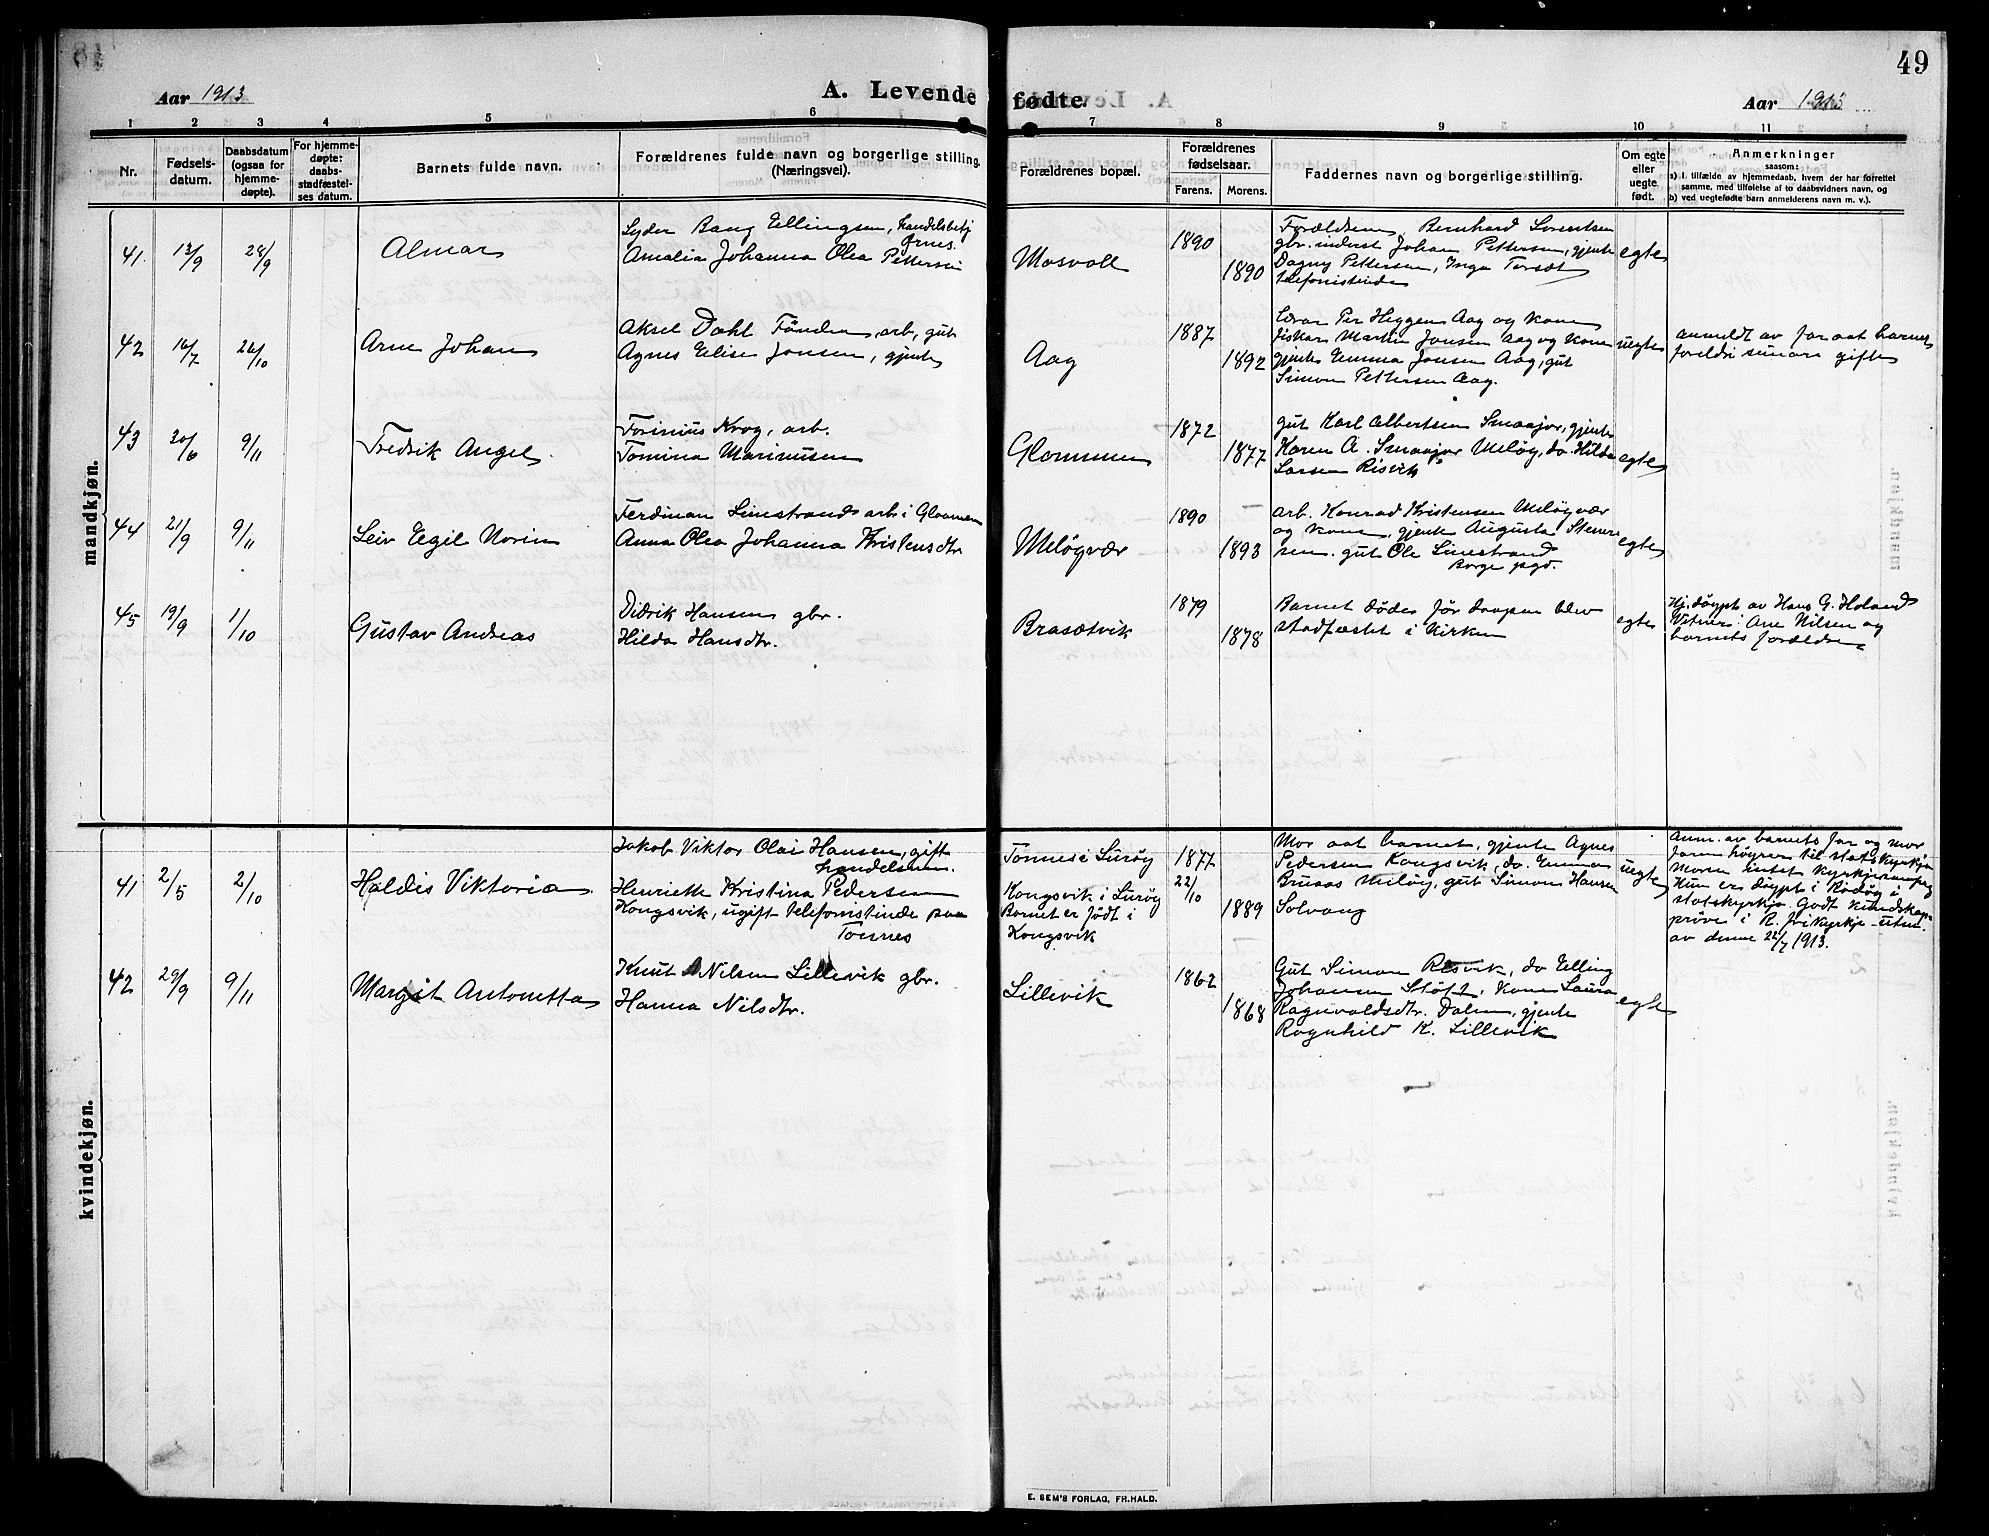 49
Aar 1913
A. Levende fødte.
Aar 1913
1 2 3 4 5 6 7 8 9 10 11
Nr.
Fødsels-
datum.
Daabsdatum
(ogsaa for
hjemme-
døpte).
For hjemme-
døpte:
daabs-
stadfæstel-
ses datum.
Barnets fulde navn.
Forældrenes fulde navn og borgerlige stilling.
(Næringsvei).
Forældrenes bopæl.
Forældrenes
fødselsaar.
Farens. Morens.
Faddernes navn og borgerlige stilling.
Om egte
eller
uegte
født.
Anmerkninger
saasom:
a) I. tilfælde av hjemmedaab, hvem der har forrettet
samme, med tilføielse af to daabsvidners navn, og
b) ved uegtefødte barn anmelderens navn m. v.).
mandkjøn.
41. 13/9 28/9
Almar
Lyder Bang Ellingsen, handelsbetj
Ørnes.
Amalia Johanna Olea Pettersen
Mosvoll
1890
1890
Forældrene, Bernhard Lorentsen
gbr. inderst Johan Pettersen, gjente
Dagny Pettersen, Inga Torsét
telefonistinde
egte
42 16/7 26/10
Arne Johan
Aksel Dahl Tønder, arb, gut
Agnes Elise Jonsen, gjente
Aag
1887
1892
Lærar Per Heggen Aag og kone
fiskar Martin Jonsen Aag og kone
gjente Emma Jonsen Aag, gut
Simon Pettersen Aag.
uegte
anmeldt av far aat barnet
foreldri seinare gifte
43 20/6 9/11
Fredrik Angel.
Torinius Krog, arb.
Tomina Marinusen
Glommen
1872
1877
gut Karl Albertsen Smaajor, gjente
Karen A. Smaajor Meløy, do. Hilda
Larsen Risvik
egte
44 21/9 9/11
Leiv Egil Norin
Ferdinan Linestrand arb. i Glommen
Anna Olea Johanna Kristensdtr
Meløyvær
1890
1893
arb. Konrad Kristensen Meløyvær
og kone, gjente Augusta Stener
sen. gut Ole Linestrand
Borge pgd.
egte
45 19/9 1/10
Gustav Andreas
Didrik Hansen gbr.
Hilda Hansdtr.
Brasetvik
1879
1878
Barnet døde før daapen blev
stadfæstet i kirken
egte
Hj. døypt av Hans G. Holand
Vitner: Ane Nilsen og
barnets forældre
kvindekjøn.
41 2/5 2/10
Haldis Viktoria
Jakob Viktor Olai Hansen, gift
handelsmn.
Henriette Kristina Pedersen
Kongsvik, ugift telefonistinde paa
Tonnes
Tonnes i Lurøy
Kongsvik i Lurøy
Barnet er født i
Kongsvik
1877
22/10
1889
Mor aat barnet, gjente Agnes
Pedersen Kongsvik, do. Emma
Bruaas Meløy, gut Simon Hansen
Solvang
uegte
Anm. av barnets far og mor
Faren høyrer til statskyrkja
Moren intet kyrkjesamfag
Hun er døypt i Rødøy i
statskyrkja. Godt kundskaps-
prøve i R. frikyrkje - utm.
av denne 22/7 1913.
42 29/9 9/11
Margit Antonetta
Knut A Nilsen Lillevik gbr.
Hanna Nilsdtr.
Lillevik
1862
1868
Gut Simon Resvik, do Elling
Johansen Støtt, kone Laura
Ragnvaldsdtr. Dalen, gjente
Ragnhild K. Lillevik
egte
E. SEM'S FORLAG, FR.HALD.